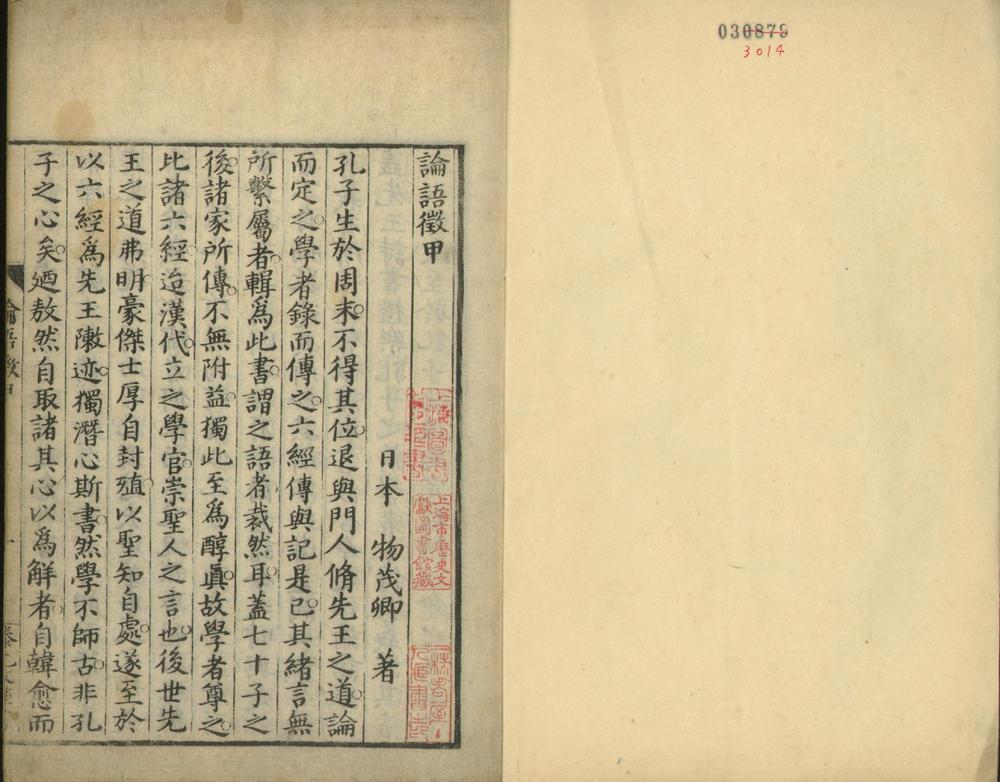 030879
3014
論語徵甲
日本 物茂卿 著
孔子生於周末不得其位退與門人脩先王之道論
而定之學者錄而傳之六經傳與記是已其緒言無
所繫屬者輯爲此書謂之語者裁然耳蓋七十子之
後諸家所傳不無附益獨此至爲醇眞故學者尊之
比諸六經迨漢代立之學官崇聖人之言也後世先
王之道弗明豪傑士厚自封殖以聖知自處遂至於
以六經爲先王陳迹獨潛心斯書然學不師古非孔
子之心矣廼敖然自取諸其心以爲解者自韓愈而
論語徵甲
上海市歷史文
獻圖書館藏